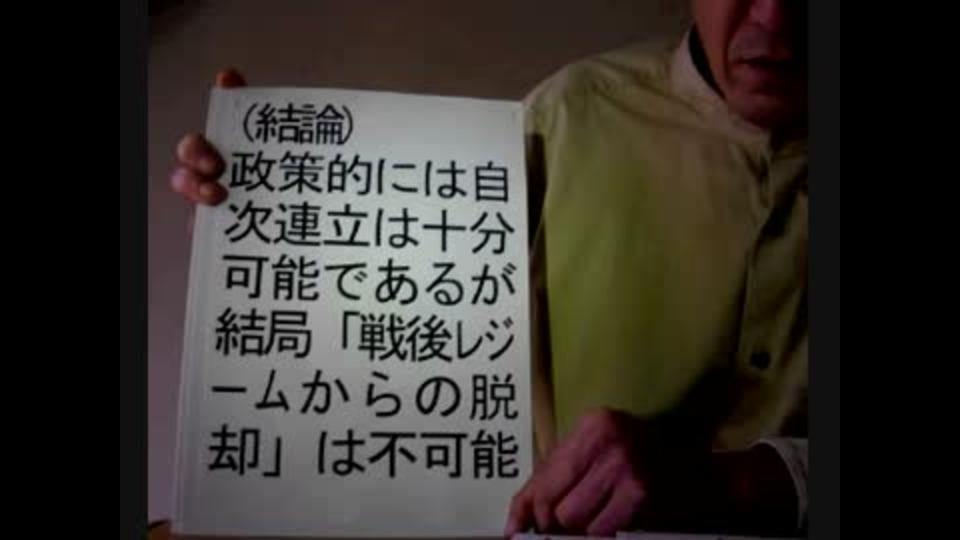 （結論）
政策的には自
次連立は十分
可能であるが
結局「戦後レジ
ームからの脱
却」は不可能